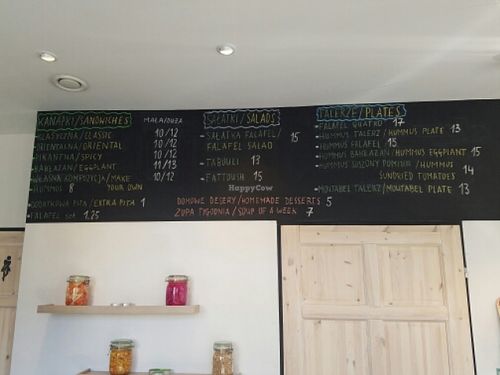 KANAPKI/SANDWICHES MAŁA/DUŻA
KLASYCZNA/CLASSIC 10/12
ORIENTALNA/ORIENTAL 10/12
PIKANTNA/SPICY 10/12
BAKŁAŻAN/EGGPLANT 11/13
WŁASNA KOMPOZYCJA/MAKE YOUR OWN 10/12
HUMMUS 8
DODATKOWA PITA/EXTRA PITA 1
FALAFEL 1.25
SAŁATKI/SALADS
SAŁATKA FALAFEL/
FALAFEL SALAD 15
TABOULI 13
FATTOUSH 15
DOMOWE DESERY/HOMEMADE DESSERTS 5
ZUPA TYGODNIA/SOUP OF A WEEK 7
TALERZE/PLATES
FALAFEL 17
HUMMUS TALERZ/HUMMUS PLATE 13
HUMMUS FALAFEL 15
HUMMUS BAKŁAŻAN/HUMMUS EGGPLANT 15
HUMMUS SUSZONY POMIDOR/HUMMUS
SUNDRIED TOMATOES 14
MOUTABEL TALERZ/MOUTABEL PLATE 13
HappyCow